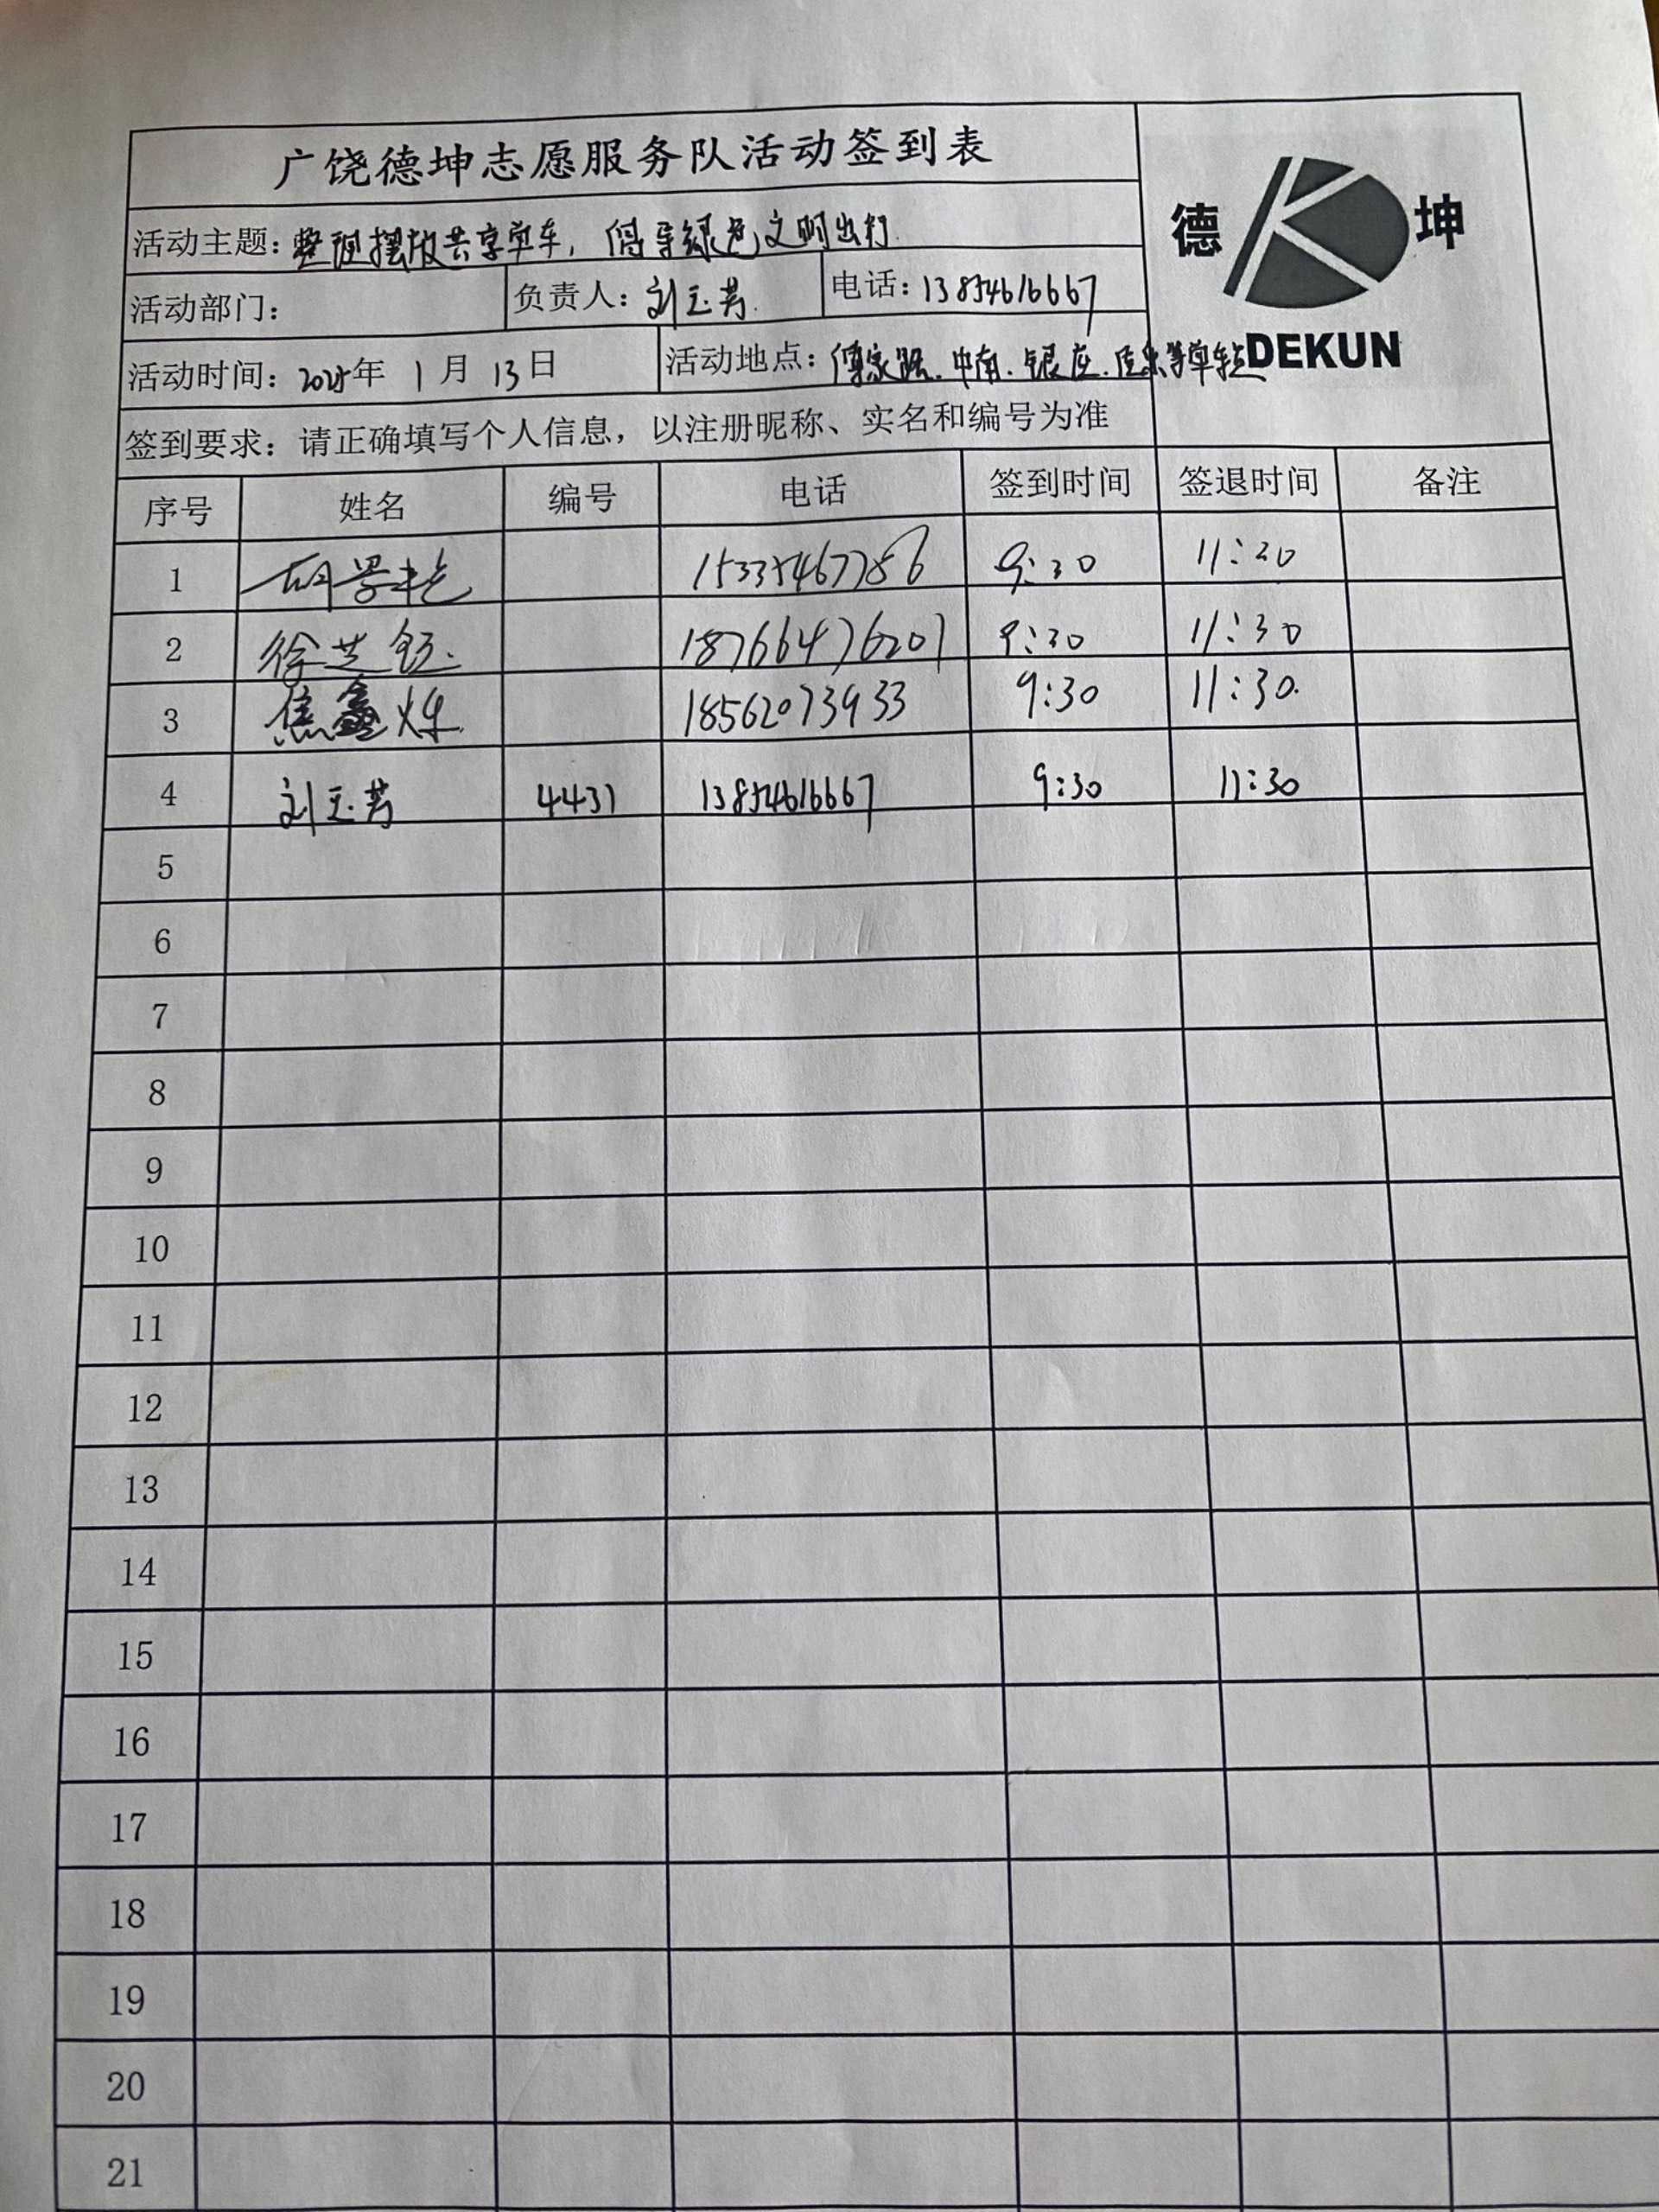 广饶德坤志愿服务队活动签到表
德 坤
DEKUN
活动主题：整理摆放共享单车，倡导绿色文明出行
活动部门： 负责人：刘玉芳 电话：13854616667
活动时间：2025年 1月 13日 活动地点：傅家路.中南.银座.佳乐等单车点
签到要求：请正确填写个人信息，以注册昵称、实名和编号为准
序号 姓名 编号 电话 签到时间 签退时间 备注
1 胡景艳 15335467786 9:30 11:20
2 徐芝 18766476201 9:30 11:30
3 焦鑫烨 18562073933 9:30 11:30
4 刘玉芳 4431 13854616667 9:30 11:30
5
6
7
8
9
10
11
12
13
14
15
16
17
18
19
20
21